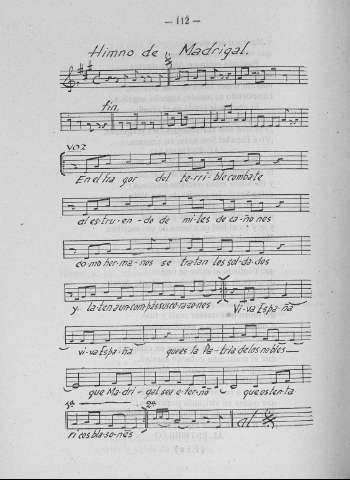 — 112 —
Himno de Madrigal.
fin.
voz
En el fra gor del te-rri-ble combate
al es-tru-en-do de mi-les de ca-ño nes
co-mo her-ma-nos se tra-tan los sol-da-dos
y la-ten a un compás sus co-ra-zo-nes Vi-va Espa-ña
vi-va Espa-ña que es la Pa-tria de los nobles
que Ma-dri-gal sea e-ter-no que os ten-ta
1ª 2ª
ri cos bla-so-nes al